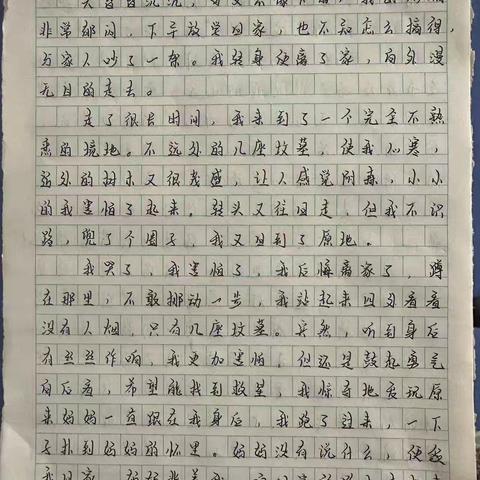 非常郁闷，下午放学回家，也不知怎么搞得，
与家人吵了一架。我转身便离了家，向外漫
无目的走去。
走了很长时间，我来到了一个完全不熟
悉的境地。不远处的几座坟墓，使我心寒，
旁处的树木又很茂盛，让人感觉阴森，小小
的我害怕了起来。转头又往回走，但我不识
路，兜了个圈子，我又回到了原地。
我哭了，我害怕了，我后悔离家了，蹲
在那里，不敢挪动一步，我站起来四处看看
没有人烟，只有几座坟墓。突然，听到身后
有丝丝作响，我更加害怕，但还是鼓起勇气
向后看，希望能找到救星，我惊奇地发现原
来妈妈一直跟在我身后，我跑了过来，一下
子扑到妈妈的怀里。妈妈没有说什么，便